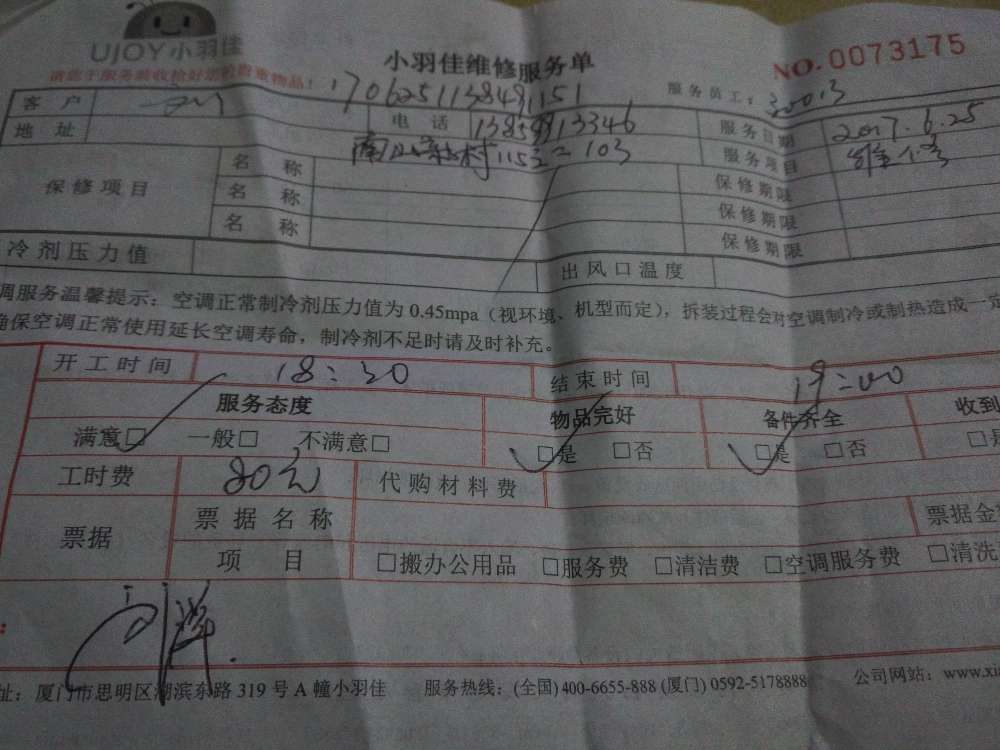 UJOY小羽佳
小羽佳维修服务单
NO.0073175
请您于服务前收恰好您的贵重物品!
170625113848151
服务员工: 30013
客户
电话 13859913346
服务日期 2017.6.25
地址 115之二103
服务项目
保修项目 名称 保修期限
名称 保修期限
名称 保修期限
冷剂压力值 出风口温度
调服务温馨提示：空调正常制冷剂压力值为0.45mpa（视环境、机型而定），拆装过程会对空调制冷或制热造成一定
确保空调正常使用延长空调寿命，制冷剂不足时请及时补充。
开工时间 18:30 结束时间 19:00
服务态度 物品完好 备件齐全 收到
满意□ 一般□ 不满意□ □是 □否 □是 □否
工时费 80元 代购材料费
票据 票据名称 票据金
项目 □搬办公用品 □服务费 □清洁费 □空调服务费 □清洗
址：厦门市思明区湖滨东路319号A幢小羽佳 服务热线：(全国)400-6655-888 (厦门) 0592-5178888 公司网站：www.xi